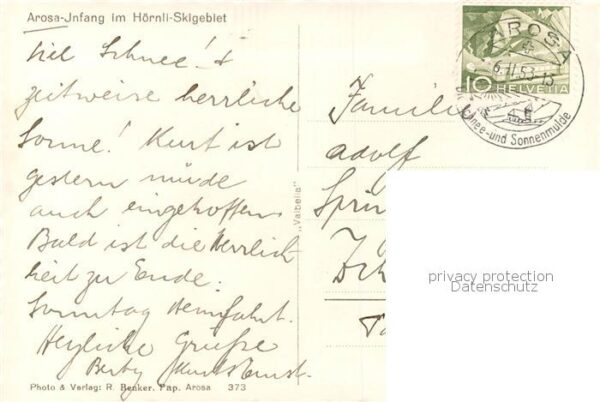 Arosa-Jnfang im Hörnli-Skigebiet
Viel Schnee! &
zeitweise herrliche
Sonne! Kurt ist
gestern müde
auch eingetroffen
Bald ist die Herrlich
keit zu Ende.
Sonntag Heimfahrt.
Herzliche Grüße
Photo & Verlag: R. Benker. Pap. Arosa 373
"Valbella"
AROSA
6.II.53-15
Schnee-und Sonnenmulde
10 HELVETIA
Familie
Adolf
privacy protection
Datenschutz